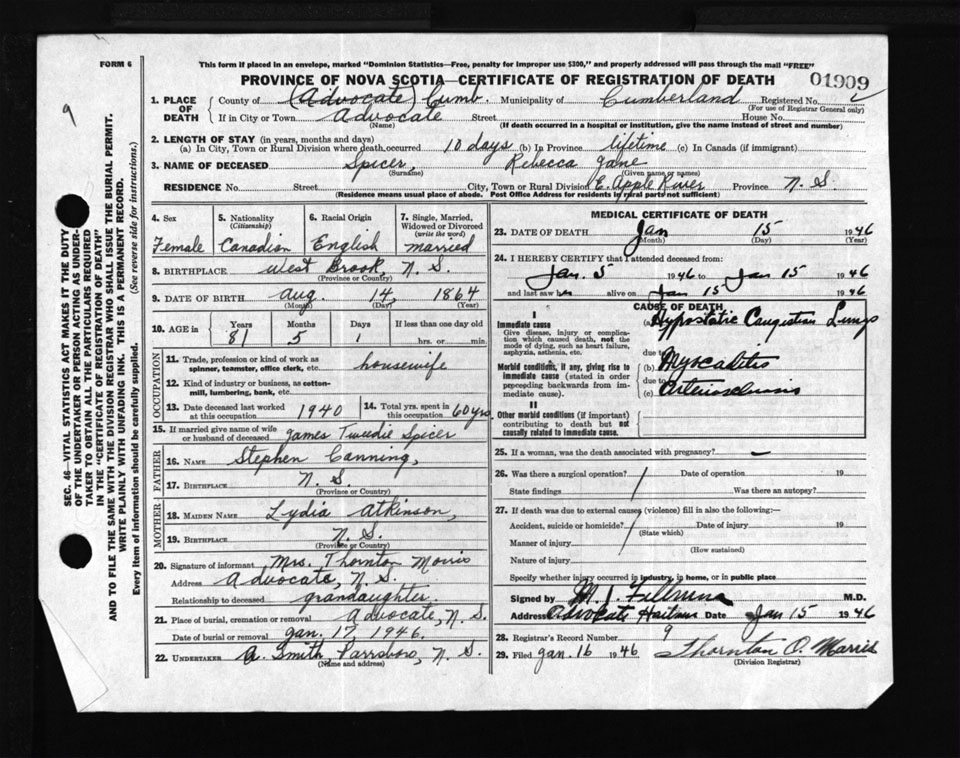 FORM 6
This form if placed in an envelope, marked "Dominion Statistics—Free, penalty for improper use $300," and properly addressed will pass through the mail "FREE"
PROVINCE OF NOVA SCOTIA—CERTIFICATE OF REGISTRATION OF DEATH
01909
9
SEC. 46—VITAL STATISTICS ACT MAKES IT THE DUTY
OF THE UNDERTAKER OR PERSON ACTING AS UNDER-
TAKER TO OBTAIN ALL THE PARTICULARS REQUIRED
IN THE "CERTIFICATE OF REGISTRATION OF DEATH"
AND TO FILE THE SAME WITH THE DIVISION REGISTRAR WHO SHALL ISSUE THE BURIAL PERMIT.
WRITE PLAINLY WITH UNFADING INK. THIS IS A PERMANENT RECORD.
Every item of information should be carefully supplied. (See reverse side for instructions.)
1. PLACE OF DEATH
County of (Advocate) Cumb. Municipality of Cumberland Registered No.
(For use of Registrar General only)
If in City or Town Advocate Street House No.
(Name) (If death occurred in a hospital or institution, give the name instead of street and number)
2. LENGTH OF STAY (in years, months and days)
(a) In City, Town or Rural Division where death occurred 10 days (b) In Province lifetime (c) In Canada (if immigrant)
3. NAME OF DECEASED Spicer, Rebecca Jane
(Surname) (Given name or names)
RESIDENCE No. Street City, Town or Rural Division E. Apple River Province N. S.
(Residence means usual place of abode. Post Office Address for residents in rural parts not sufficient)
4. Sex
Female
5. Nationality
(Citizenship)
Canadian
6. Racial Origin
English
7. Single, Married,
Widowed or Divorced
(write the word)
married
8. BIRTHPLACE West Brook, N. S.
(Province or Country)
9. DATE OF BIRTH Aug. 14, 1864
(Month) (Day) (Year)
10. AGE in Years Months Days If less than one day old
81 5 1 hrs. or min.
OCCUPATION
11. Trade, profession or kind of work as
spinner, teamster, office clerk, etc. housewife
12. Kind of industry or business, as cotton-
mill, lumbering, bank, etc.
13. Date deceased last worked
at this occupation 1940
14. Total yrs. spent in
this occupation 60 yrs
15. If married give name of wife
or husband of deceased James Tweedie Spicer
FATHER
16. NAME Stephen Canning,
17. BIRTHPLACE N. S.
(Province or Country)
MOTHER
18. MAIDEN NAME Lydia Atkinson,
19. BIRTHPLACE N. S.
(Province or Country)
20. Signature of informant Mrs. Thornton Morris
Address Advocate, N. S.
Relationship to deceased grandaughter.
21. Place of burial, cremation or removal Advocate, N. S.
Date of burial or removal Jan. 17, 1946.
22. UNDERTAKER A. Smith, Parrsboro, N. S.
(Name and address)
MEDICAL CERTIFICATE OF DEATH
23. DATE OF DEATH Jan 15 1946
(Month) (Day) (Year)
24. I HEREBY CERTIFY that I attended deceased from:
Jan. 5 1946 to Jan 15 1946
and last saw her alive on Jan 15 1946
CAUSE OF DEATH
I
Immediate cause
Give disease, injury or complica-
tion which caused death, not the
mode of dying, such as heart failure,
asphyxia, asthenia, etc.
(a) Hypostatic Congestion Lungs
due to
Morbid conditions, if any, giving rise to
immediate cause (stated in order
proceeding backwards from im-
mediate cause).
(b) Myocarditis
due to
(c) Arteriosclerosis
II
Other morbid conditions (if important)
contributing to death but not
causally related to immediate cause.
25. If a woman, was the death associated with pregnancy? —
26. Was there a surgical operation? / Date of operation 19
State findings Was there an autopsy?
27. If death was due to external causes (violence) fill in also the following:—
Accident, suicide or homicide? / Date of injury 19
(State which)
Manner of injury
(How sustained)
Nature of injury
Specify whether injury occurred in industry, in home, or in public place
Signed by M. J. M.D.
Address Advocate Date Jan 15 1946
28. Registrar's Record Number 9
29. Filed Jan. 16 1946 Thornton O. Morris
(Division Registrar)